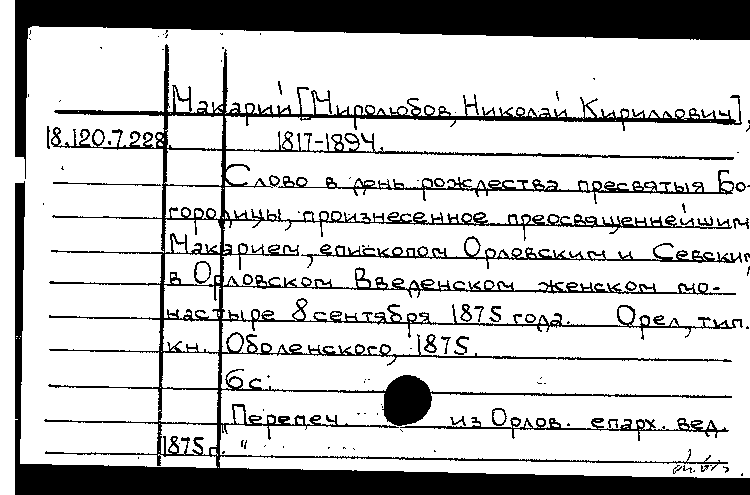 Макарий [Миролюбов, Николай Кириллович],
18.120.7.228. 1817-1894.
Слово в день рождества пресвятыя Бо-
городицы, произнесенное преосвященнейшим
Макарием, епископом Орловским и Севским,
в Орловском Введенском женском мо-
настыре 8 сентября 1875 года. Орел, тип.
кн. Оболенского, 1875.
6 с.
"Перепеч. из Орлов. епарх. вед.
1875 г."